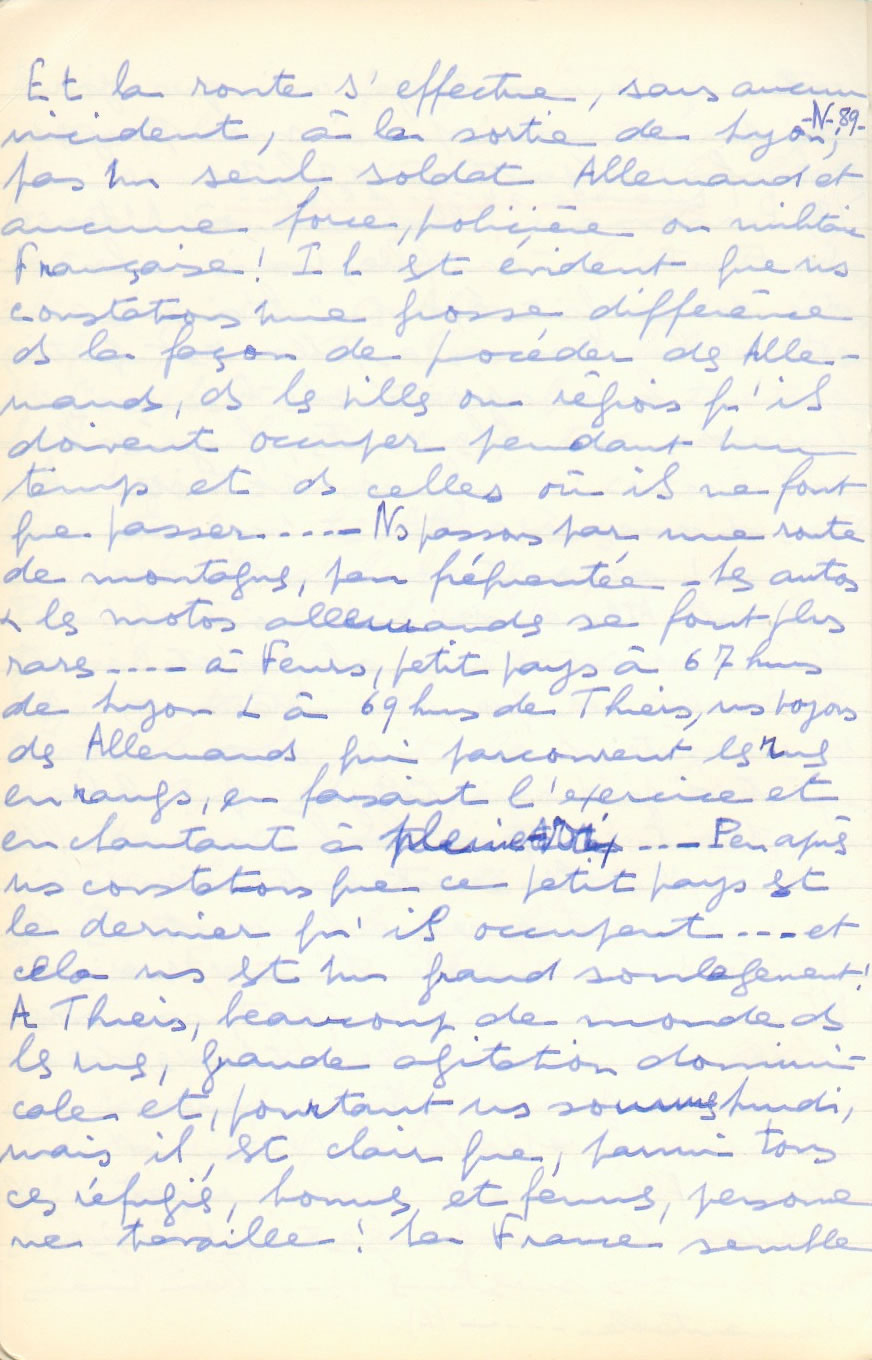 Et la route s'effectue, sans aucun
-N-89-
incident, à la sortie de Lyon,
pas un seul soldat Allemand et
aucune force, policière ou militaire
Française! Il est évident que ns
constatons une grosse différence
ds la façon de procéder des Alle-
mands, ds les villes ou régions qu'ils
doivent occuper pendant un
temps et ds celles où ils ne font
que passer..... Ns passons par une route
de montagnes, peu fréquentée - Les autos
& les motos allemandes se font plus
rares.... à Feurs, petit pays à 67 kms
de Lyon & à 69 kms de Thiers, ns voyons
des Allemands qui parcourent les rues
en rangs, en faisant l'exercice et
en chantant à pleine voix .... Peu après
ns constatons que ce petit pays est
le dernier qu'ils occupent ... et
cela ns est un grand soulagement!
A Thiers, beaucoup de monde ds
les rues, grande agitation domini-
cale et, pourtant ns sommes lundi,
mais il est clair que, parmi tous
ces réfugiés, hommes et femmes, personne
ne travaille! La France semble